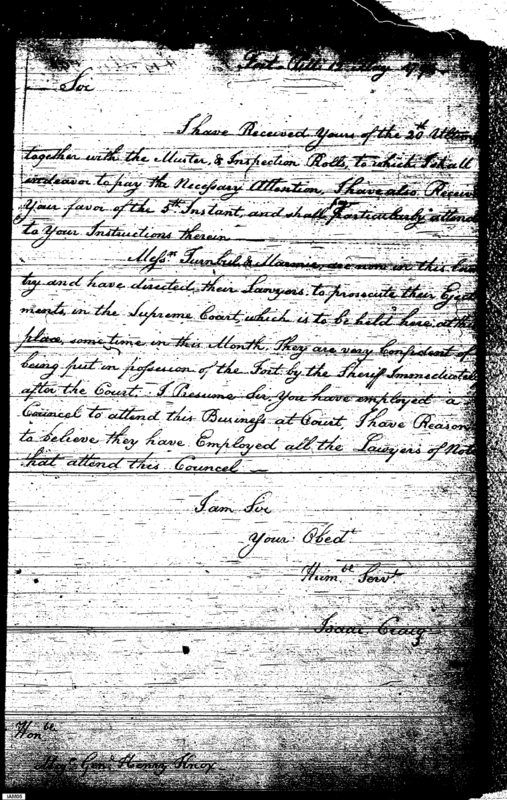 Fort Pitt 12 May 17
Sir
I have Received Yours of the 20th Ultimo
together with the Muster & Inspection Rolls, to which I shall
endeavor to pay the Necessary Attention, I have also Receiv
Your favor of the 5th Instant, and shall Particularly attend
to Your Instructions therein
Messrs Turnbul & Marmie, are now in this Coun
try and have directed their Lawyers to prosecute their Eject
ments, in the Supreme Court, which is to be held here, at this
place, sometime in this Month, They are very Confident of
being put in possession of the Fort by the Sheriff Immediatel
after the Court. I Presume Sir, You have employed a
Councel to attend this Business at Court, I have Reason
to believe they have Employed all the Lawyers of Note
that attend this Councel
I am Sir
Your Obedt
Humble Servt
Isaac Craig
Honble
Majr Genl Henry Knox